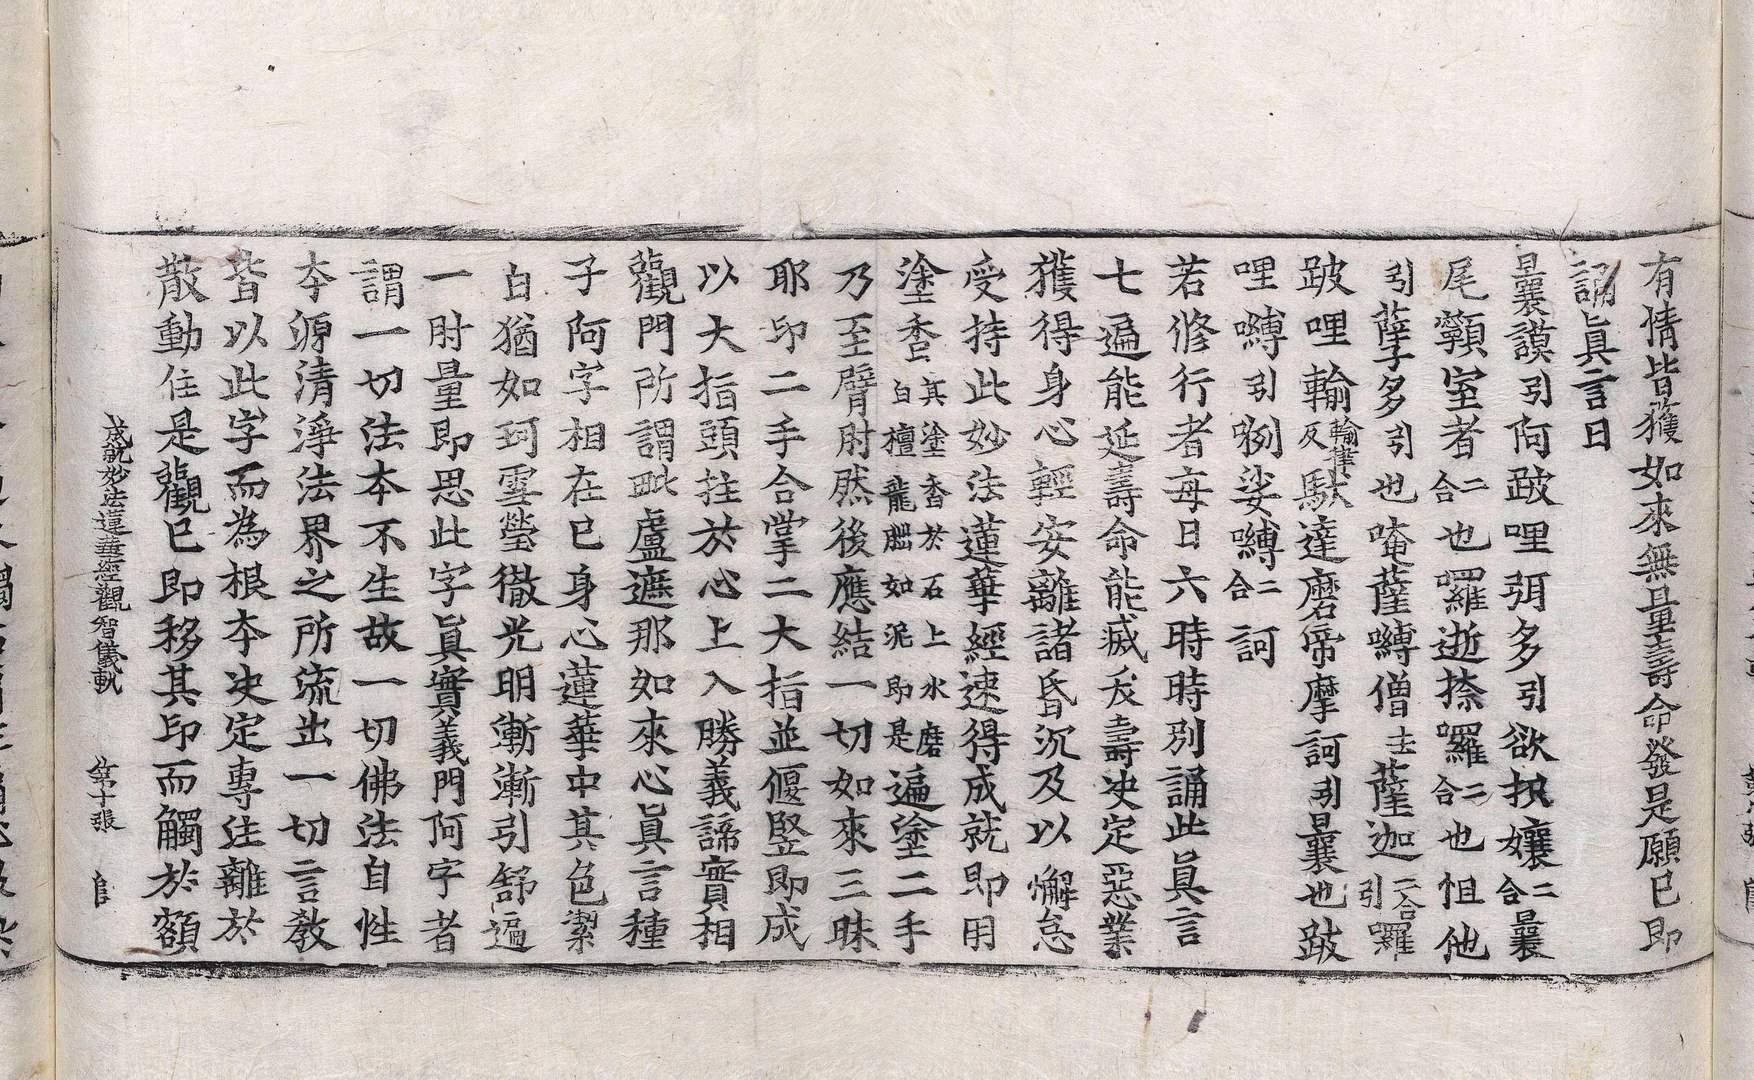 有情皆獲如來無量壽命發是願已即
誦眞言曰
曩謨引阿跛哩弭多引欲抧孃二合曩
尾顙室者二合也囉逝捺囉二合也怛他
引孽多引也唵薩嚩僧士薩迦二合引囉
跛哩輸輸律反馱達磨帝摩訶引曩也跛
哩嚩引㘑娑嚩二合訶
若修行者每日六時時別誦此眞言
七遍能延壽命能滅夭壽決定惡業
獲得身心輕安離諸昏沉及以懈怠
受持此妙法蓮華經速得成就即用
塗香其塗香於石上水磨白檀龍腦如泥即是遍塗二手
乃至臂肘然後應結一切如來三昧
耶印二手合掌二大指並偃竪即成
以大指頭拄於心上入勝義諦實相
觀門所謂毗盧遮那如來心眞言種
子阿字相在已身心蓮華中其色潔
白猶如珂雪瑩徹光明漸漸引舒遍
一肘量即思此字眞實義門阿字者
謂一切法本不生故一切佛法自性
本源清淨法界之所流出一切言教
皆以此字而為根本決定專注離於
散動住是觀已即移其印而觸於額
成就妙法蓮華經觀智儀軌　第十張　官